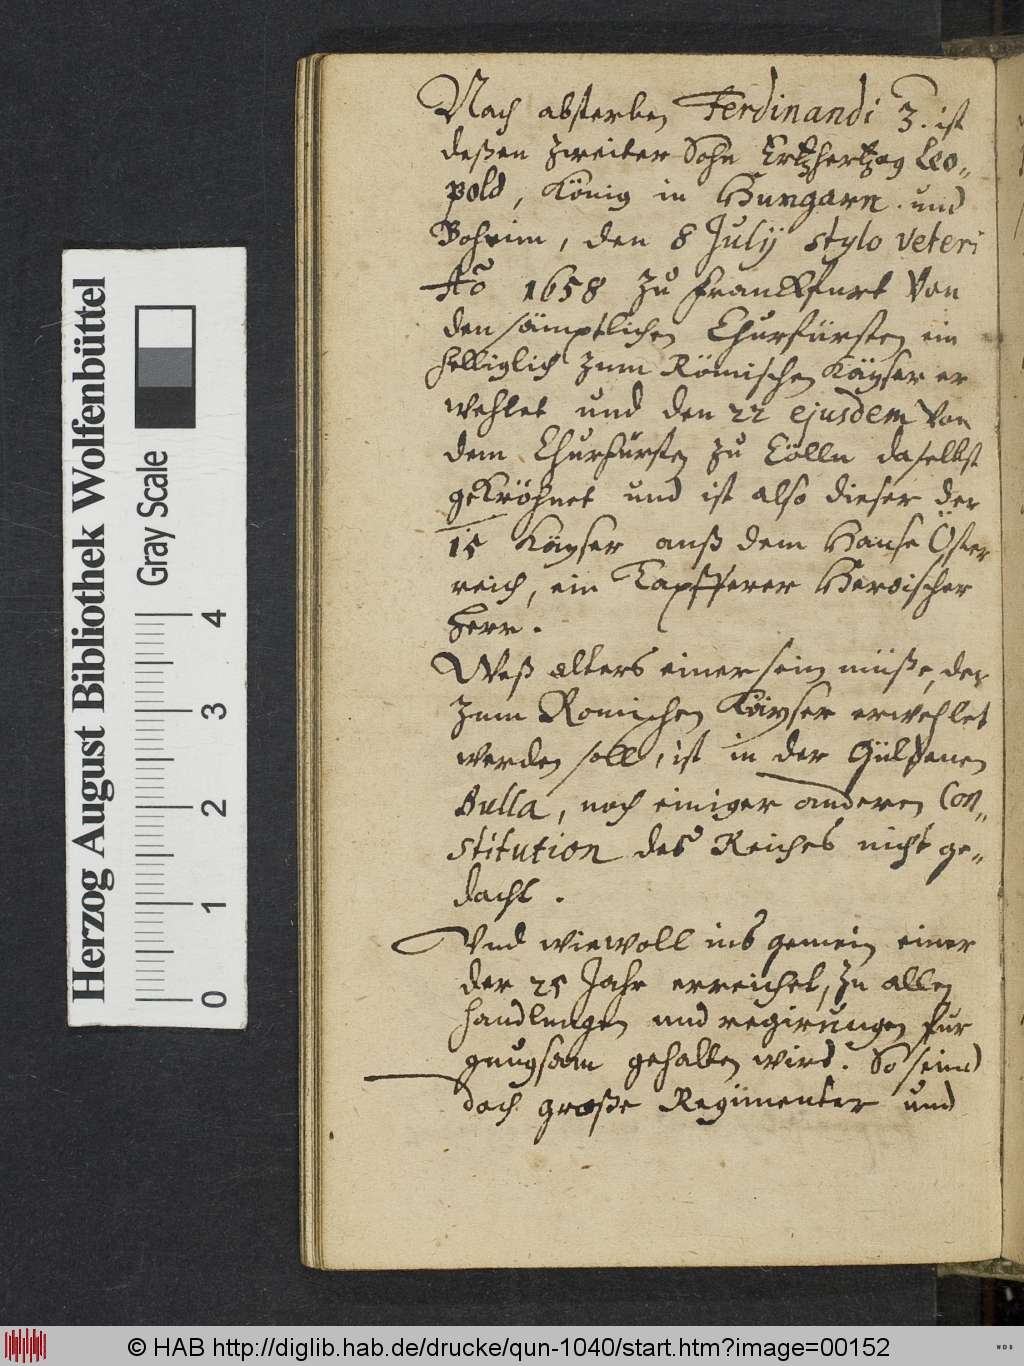 Nach absterben Ferdinandi 3. ist
deßen zweiter Sohn Ertzhertzog Leo-
pold, König in Hungarn und
Boheim, den 8 Julij stylo veteri
Aõ 1658 zu Franckfurt von
den sämptlichen Churfürsten ein
helliglich zum Römischen Käyser er
wehlet und den 22 ejusdem von
dem Churfürsten zu Cölln daselbst
gekröhnet und ist also dieser der
15 Käyser auß dem Hause Öster
reich, ein Tapfferer Heroischer
Herr.
Weß alters einer sein müße, der
zum Romischen Käyser erwehlet
werden soll, ist in der Güldenen
Bulla, noch einiger anderen Con-
stitution des Reiches nicht ge-
dacht.
Und wiewoll ins gemein einer
der 25 Jahr erreichet, zu allen
handlungen und regirungen fur
gnugsam gehalten wird. So seind
doch große Regimenter und
Herzog August Bibliothek Wolfenbüttel
Gray Scale
0 1 2 3 4
© HAB http://diglib.hab.de/drucke/qun-1040/start.htm?image=00152